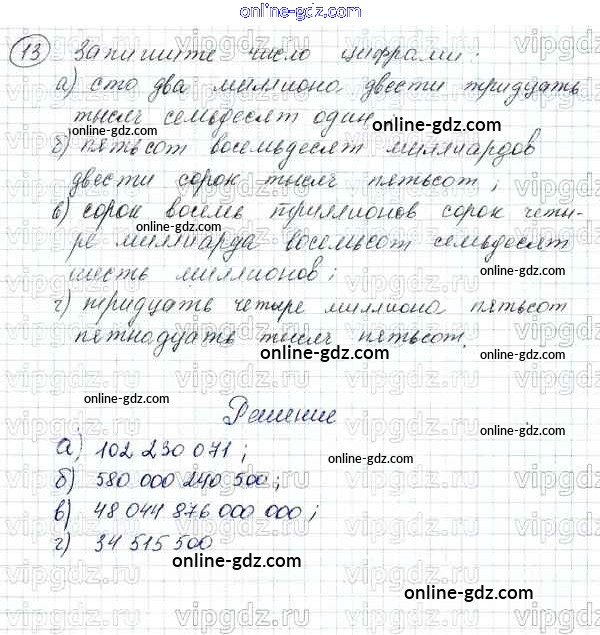 online-gdz.com
13 Запишите число цифрами:
а) сто два миллиона двести тридцать
тысяч семьдесят один
online-gdz.com
online-gdz.com
б) пятьсот восемьдесят миллиардов
online-gdz.com
двести сорок тысяч пятьсот;
online-gdz.com
в) сорок восемь триллионов сорок четы-
ре миллиарда восемьсот семьдесят
online-gdz.com
шесть миллионов;
online-gdz.com
г) тридцать четыре миллиона пятьсот
пятнадцать тысяч пятьсот.
online-gdz.com
online-gdz.com
Решение
online-gdz.com
а) 102 230 071;
online-gdz.com
б) 580 000 240 500;
online-gdz.com
в) 48 044 876 000 000;
online-gdz.com
г) 34 515 500
online-gdz.com
online-gdz.com
vipgdz.ru